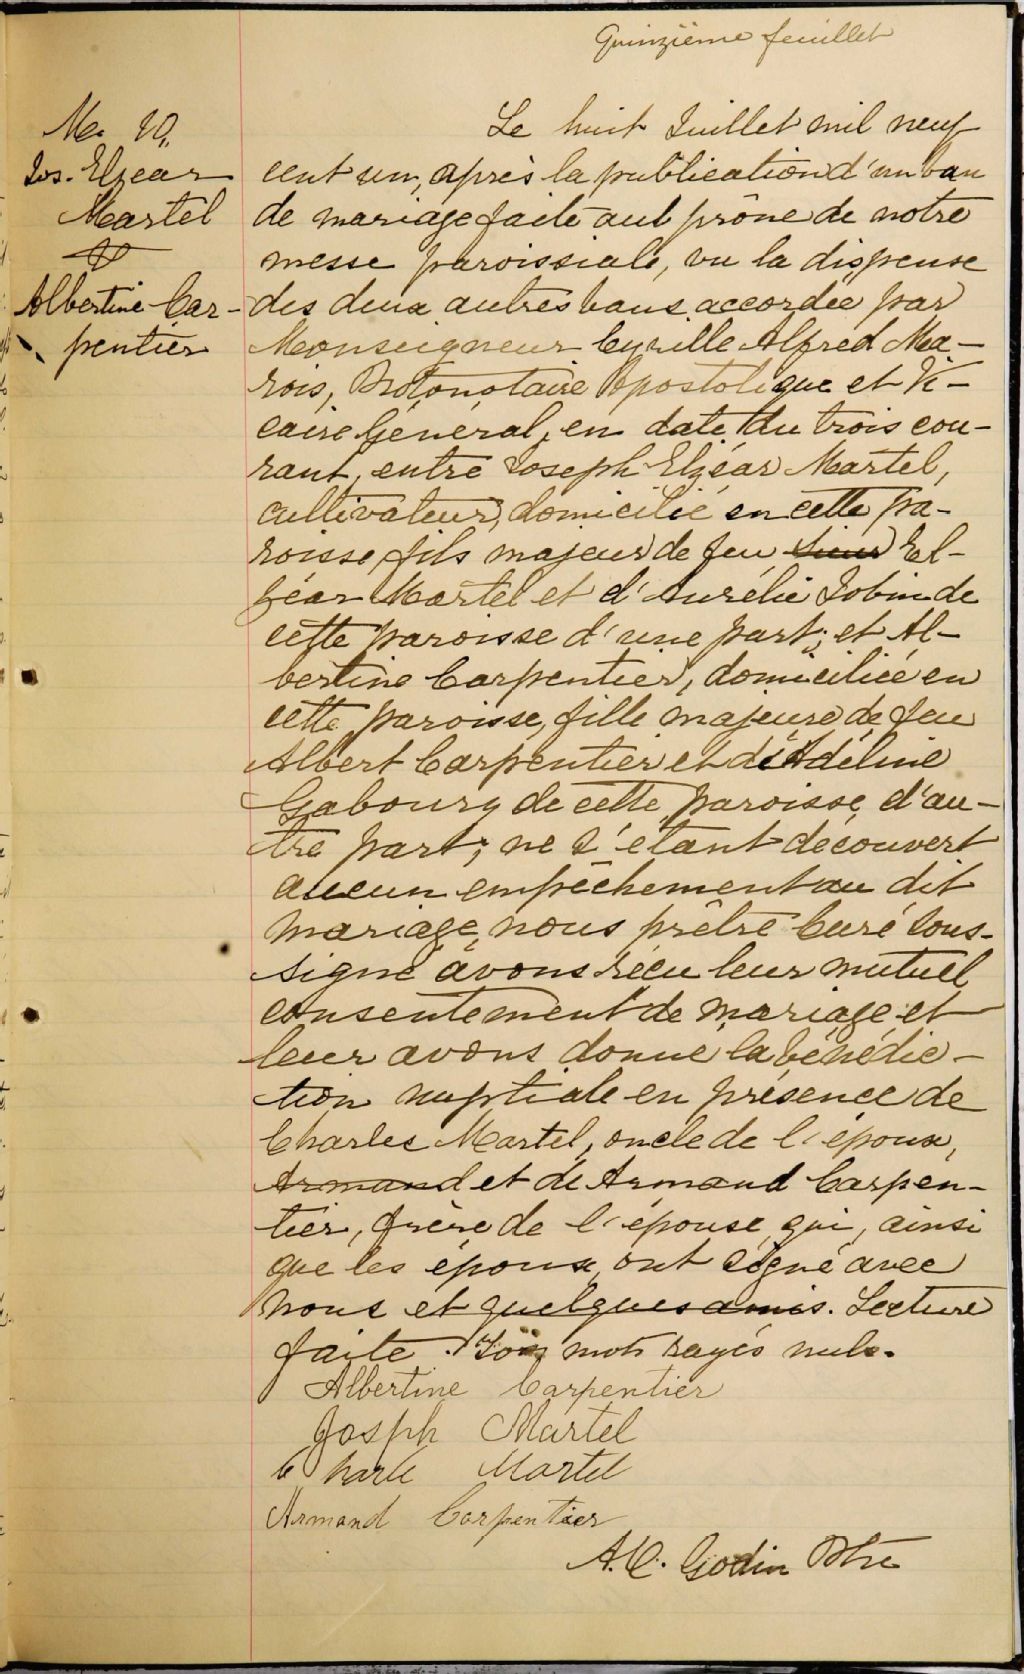 Quinzième feuillet
M. 10.
Jos. Elzear
Martel
&
Albertine Car-
pentier
Le huit Juillet mil neuf
cent un, après la publication d'un ban
de mariage faite au prône de notre
messe paroissiale, vu la dispense
des deux autres bans accordée par
Monseigneur Cyrille Alfred Ma-
rois, Protonotaire Apostolique et Vi-
caire Général, en date du trois cou-
rant, entre Joseph Elzéar Martel,
cultivateur, domicilié en cette pa-
roisse, fils majeur de feu sieur El-
zéar Martel et d'Aurélie Jobin de
cette paroisse d'une part; et Al-
bertine Carpentier, domiciliée en
cette paroisse, fille majeure de feu
Albert Carpentier et de Adéline
Gaboury de cette paroisse, d'au-
tre part; ne s'étant découvert
aucun empêchement au dit
mariage, nous prêtre Curé sous-
signé avons reçu leur mutuel
consentement de mariage et
leur avons donné la bénédic-
tion nuptiale en présence de
Charles Martel, oncle de l'époux,
Armand et de Armand Carpen-
tier, frère de l'épouse, qui, ainsi
que les époux, ont signé avec
nous et quelques amis. Lecture
faite. mots rayés nuls.
Albertine Carpentier
Joseph Martel
Charle Martel
Armand Carpentier
A. C. Godin Ptre